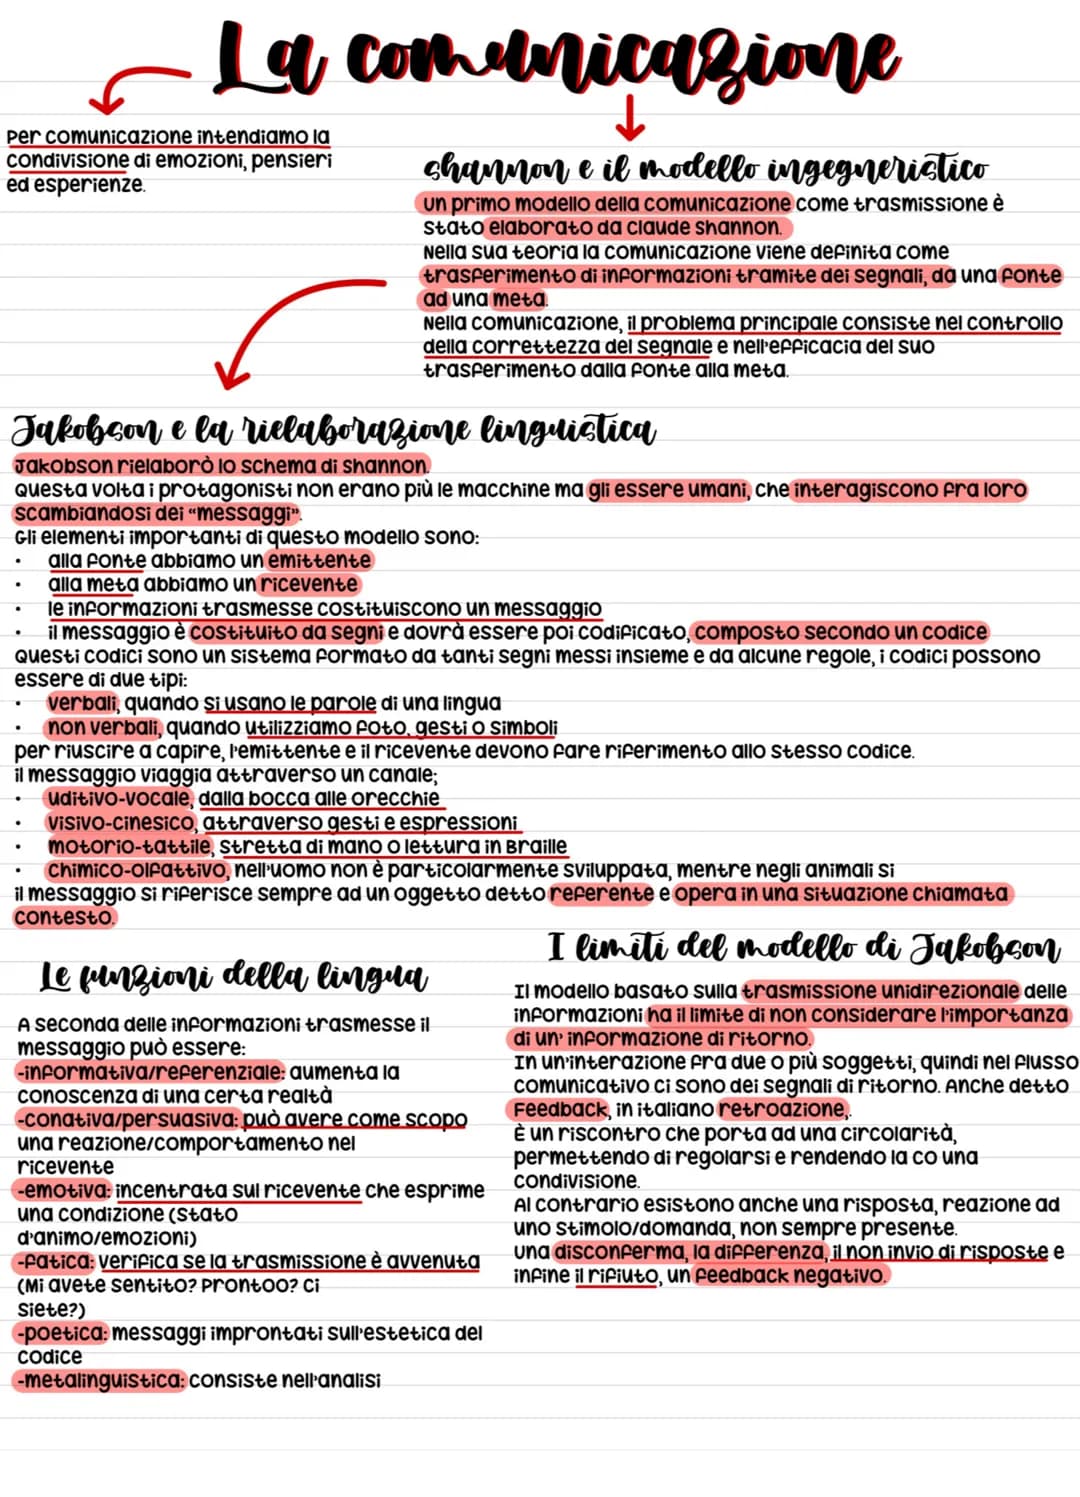 La comunicazione
Per comunicazione intendiamo la
condivisione di emozioni, pensieri
ed esperienze.
Shannon e il modello ingegneristico
Un primo modello della comunicazione come trasmissione è
stato elaborato da Claude Shannon.
Nella sua teoria la comunicazione viene definita come
trasferimento di informazioni tramite dei segnali, da una fonte
ad una meta.
Nella comunicazione, il problema principale consiste nel controllo
della correttezza del segnale e nell'efficacia del suo
trasferimento dalla fonte alla meta.
Jakobson e la rielaborazione linguistica
Jakobson rielaborò lo schema di Shannon.
Questa volta i protagonisti non erano più le macchine ma gli essere umani, che interagiscono fra loro
scambiandosi dei "messaggi".
Gli elementi importanti di questo modello sono:
• alla fonte abbiamo un emittente
• alla meta abbiamo un ricevente
• le informazioni trasmesse costituiscono un messaggio
• il messaggio è costituito da segni e dovrà essere poi codificato, composto secondo un codice
Questi codici sono un sistema formato da tanti segni messi insieme e da alcune regole, i codici possono
essere di due tipi:
• verbali, quando si usano le parole di una lingua
• non verbali, quando utilizziamo foto, gesti o simboli
per riuscire a capire, l'emittente e il ricevente devono fare riferimento allo stesso codice.
il messaggio viaggia attraverso un canale;
• uditivo-vocale, dalla bocca alle orecchie
• visivo-cinesico, attraverso gesti e espressioni
• motorio-tattile, stretta di mano o lettura in Braille
• chimico-olfattivo, nell'uomo non è particolarmente sviluppata, mentre negli animali si
il messaggio si riferisce sempre ad un oggetto detto referente e opera in una situazione chiamata
contesto.
Le funzioni della lingua
A seconda delle informazioni trasmesse il
messaggio può essere:
-informativa/referenziale: aumenta la
conoscenza di una certa realtà
-conativa/persuasiva: può avere come scopo
una reazione/comportamento nel
ricevente
-emotiva: incentrata sul ricevente che esprime
una condizione (stato
d'animo/emozioni)
-fatica: verifica se la trasmissione è avvenuta
(Mi avete sentito? Prontoo? Ci
siete?)
-poetica: messaggi improntati sull'estetica del
codice
-metalinguistica: consiste nell'analisi
I limiti del modello di Jakobson
Il modello basato sulla trasmissione unidirezionale delle
informazioni ha il limite di non considerare l'importanza
di un' informazione di ritorno.
In un'interazione fra due o più soggetti, quindi nel flusso
comunicativo ci sono dei segnali di ritorno. Anche detto
Feedback, in italiano retroazione,.
È un riscontro che porta ad una circolarità,
permettendo di regolarsi e rendendo la co una
condivisione.
Al contrario esistono anche una risposta, reazione ad
uno stimolo/domanda, non sempre presente.
una disconferma, la differenza, il non invio di risposte e
infine il rifiuto, un feedback negativo.